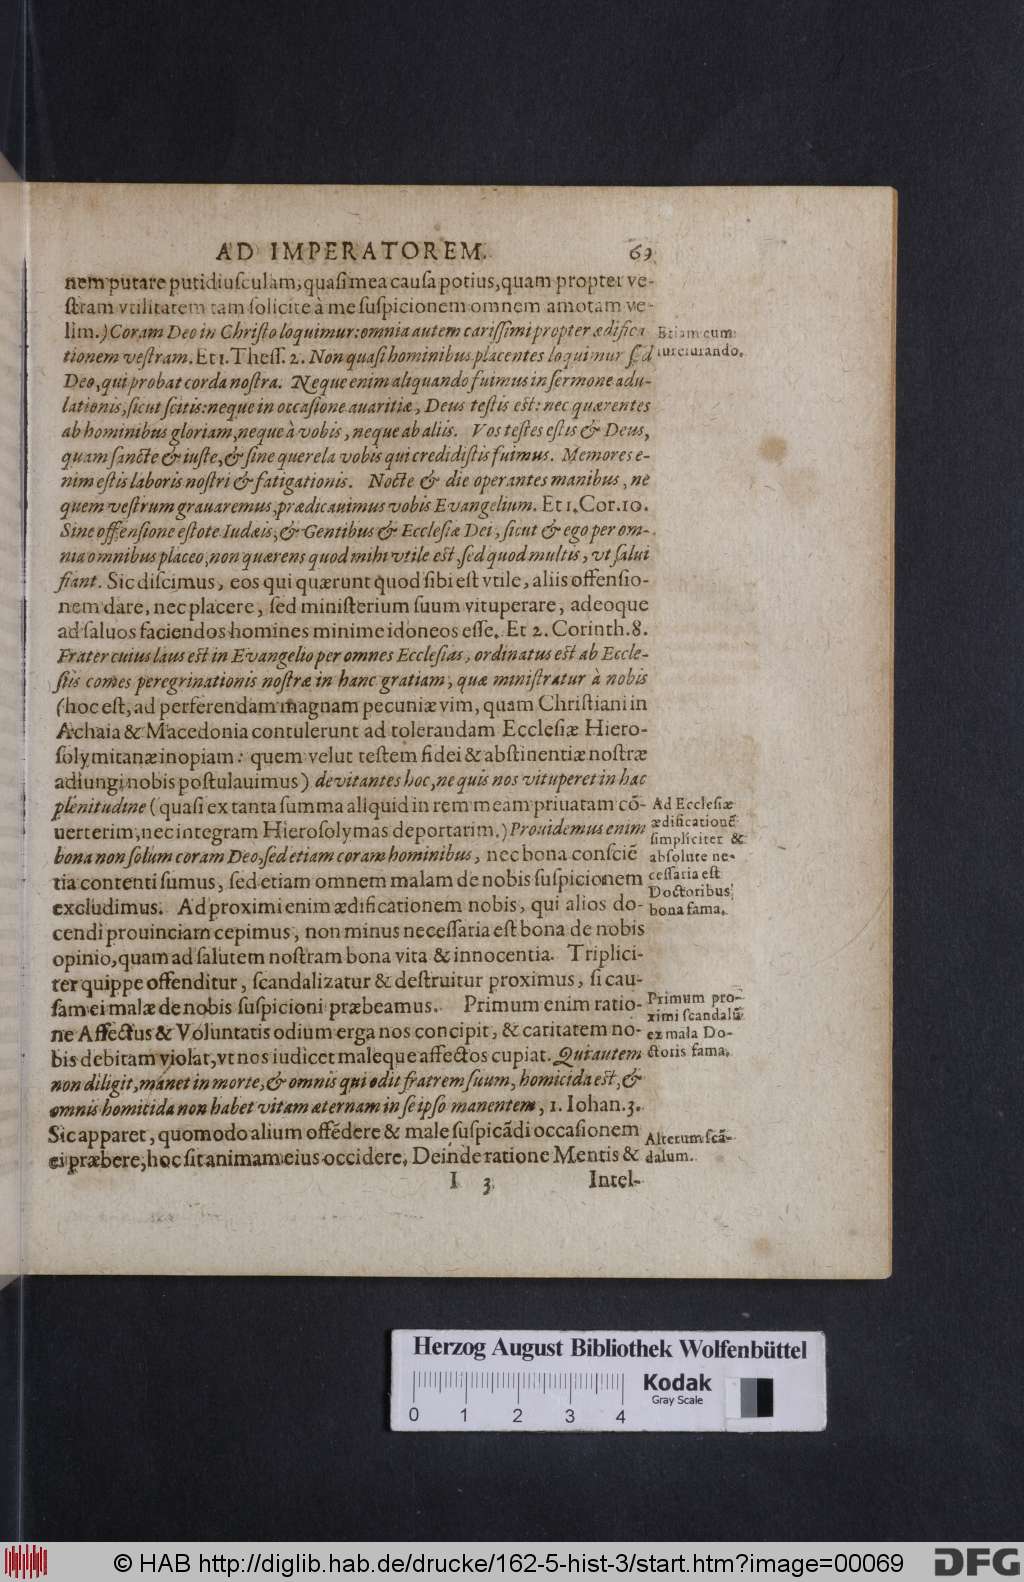 AD IMPERATOREM. 69
nem putare putidiuſculam, quaſi mea cauſa potius, quam propter ve-
ſtram vtilitatem tam ſolicite à me ſuſpicionem omnem amotam ve-
lim.) Coram Deo in Chriſto loquimur: omnia autem cariſſimi propter ædifica
tionem veſtram. Et 1. Theſſ. 2. Non quaſi hominibus placentes loquimur ſed
Deo, qui probat corda noſtra. Neque enim aliquando fuimus in ſermone adu-
lationis, ſicut ſcitis: neque in occaſione auaritiæ, Deus teſtis est: nec quærentes
ab hominibus gloriam, neque à vobis, neque ab aliis. Vos teſtes eſtis & Deus,
quam ſancte & iuſte, & ſine querela vobis qui credidiſtis fuimus. Memores e-
nim eſtis laboris noſtri & fatigationis. Nocte & die operantes manibus, ne
quem veſtrum grauaremus, prædicauimus vobis Evangelium. Et 1. Cor. 10.
Sine offenſione eſtote Iudæis, & Gentibus & Eccleſiæ Dei, ſicut & ego per om-
nia omnibus placeo, non quærens quod mihi vtile est, ſed quod multis, vt ſalui
fiant. Sic diſcimus, eos qui quærunt quod ſibi eſt vtile, aliis offenſio-
nem dare, nec placere, ſed miniſterium ſuum vituperare, adeoque
ad ſaluos faciendos homines minime idoneos eſſe. Et 2. Corinth. 8.
Frater cuius laus est in Evangelio per omnes Eccleſias, ordinatus est ab Eccle-
ſiis comes peregrinationis noſtræ in hanc gratiam, quæ miniſtratur à nobis
(hoc eſt, ad perferendam magnam pecuniæ vim, quam Chriſtiani in
Achaia & Macedonia contulerunt ad tolerandam Eccleſiæ Hiero-
ſolymitanæ inopiam: quem velut teſtem fidei & abſtinentiæ noſtræ
adiungi nobis poſtulauimus) devitantes hoc, ne quis nos vituperet in hac
plenitudine (quaſi ex tanta ſumma aliquid in rem meam priuatam cō-
uerterim, nec integram Hieroſolymas deportarim.) Prouidemus enim
bona non ſolum coram Deo, ſed etiam coram hominibus, nec bona conſciē
tia contenti ſumus, ſed etiam omnem malam de nobis ſuſpicionem
excludimus. Ad proximi enim ædificationem nobis, qui alios do-
cendi prouinciam cepimus, non minus neceſſaria eſt bona de nobis
opinio, quam ad ſalutem noſtram bona vita & innocentia. Triplici-
ter quippe offenditur, ſcandalizatur & deſtruitur proximus, ſi cau-
ſam ei malæ de nobis ſuſpicioni præbeamus. Primum enim ratio-
ne Affectus & Voluntatis odium erga nos concipit, & caritatem no-
bis debitam violat, vt nos iudicet maleque affectos cupiat. Qui autem
non diligit, manet in morte, & omnis qui odit fratrem ſuum, homicida est, &
omnis homicida non habet vitam æternam in ſeipſo manentem, 1. Iohan. 3.
Sic apparet, quomodo alium offēdere & male ſuſpicādi occaſionem
ei præbere, hoc ſit animam eius occidere. Deinde ratione Mentis &
I 3 Intel-
Etiam cum
iureiurando.
Ad Eccleſiæ
ædificationē
ſimpliciter &
abſolute ne-
ceſſaria eſt
Doctoribus
bona fama.
Primum pro-
ximi ſcandalū
ex mala Do-
ctoris fama.
Alterum ſcā-
dalum.
Herzog August Bibliothek Wolfenbüttel
Kodak
Gray Scale
0 1 2 3 4
© HAB http://diglib.hab.de/drucke/162-5-hist-3/start.htm?image=00069
DFG